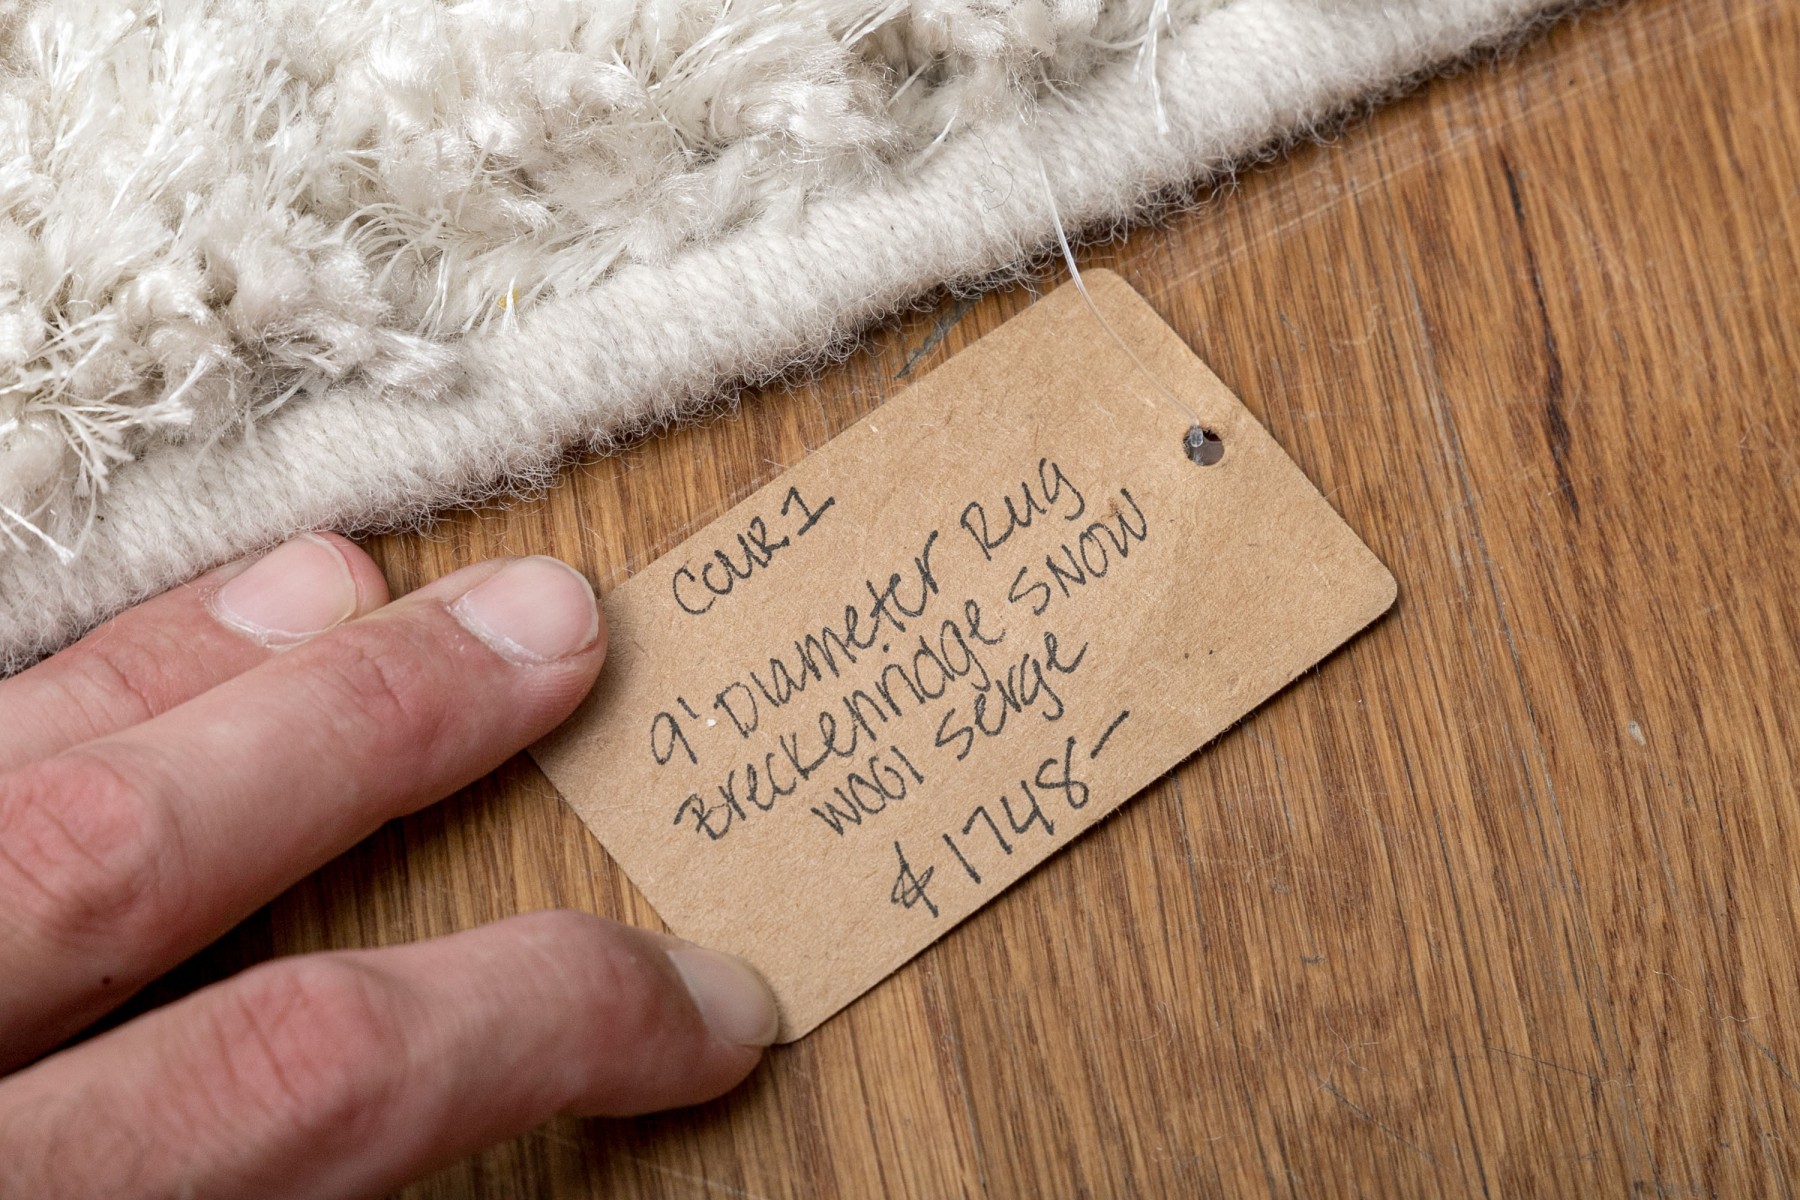 COUR1
9' Diameter Rug
Breckenridge SNOW
wool serge
$1748-